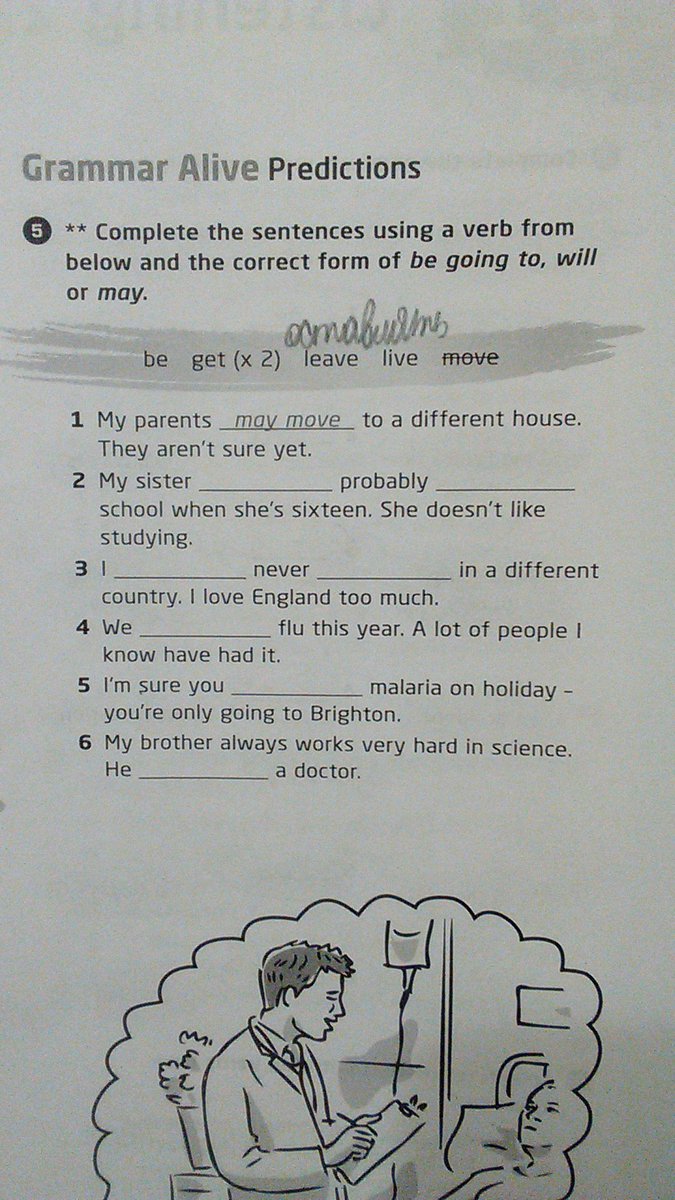 Grammar Alive Predictions
5 ** Complete the sentences using a verb from
below and the correct form of be going to, will
or may.
be get (x 2) leave live move
1 My parents may move to a different house.
They aren't sure yet.
2 My sister ____________ probably ____________
school when she's sixteen. She doesn't like
studying.
3 I ____________ never ____________ in a different
country. I love England too much.
4 We ____________ flu this year. A lot of people I
know have had it.
5 I'm sure you ____________ malaria on holiday –
you're only going to Brighton.
6 My brother always works very hard in science.
He ____________ a doctor.